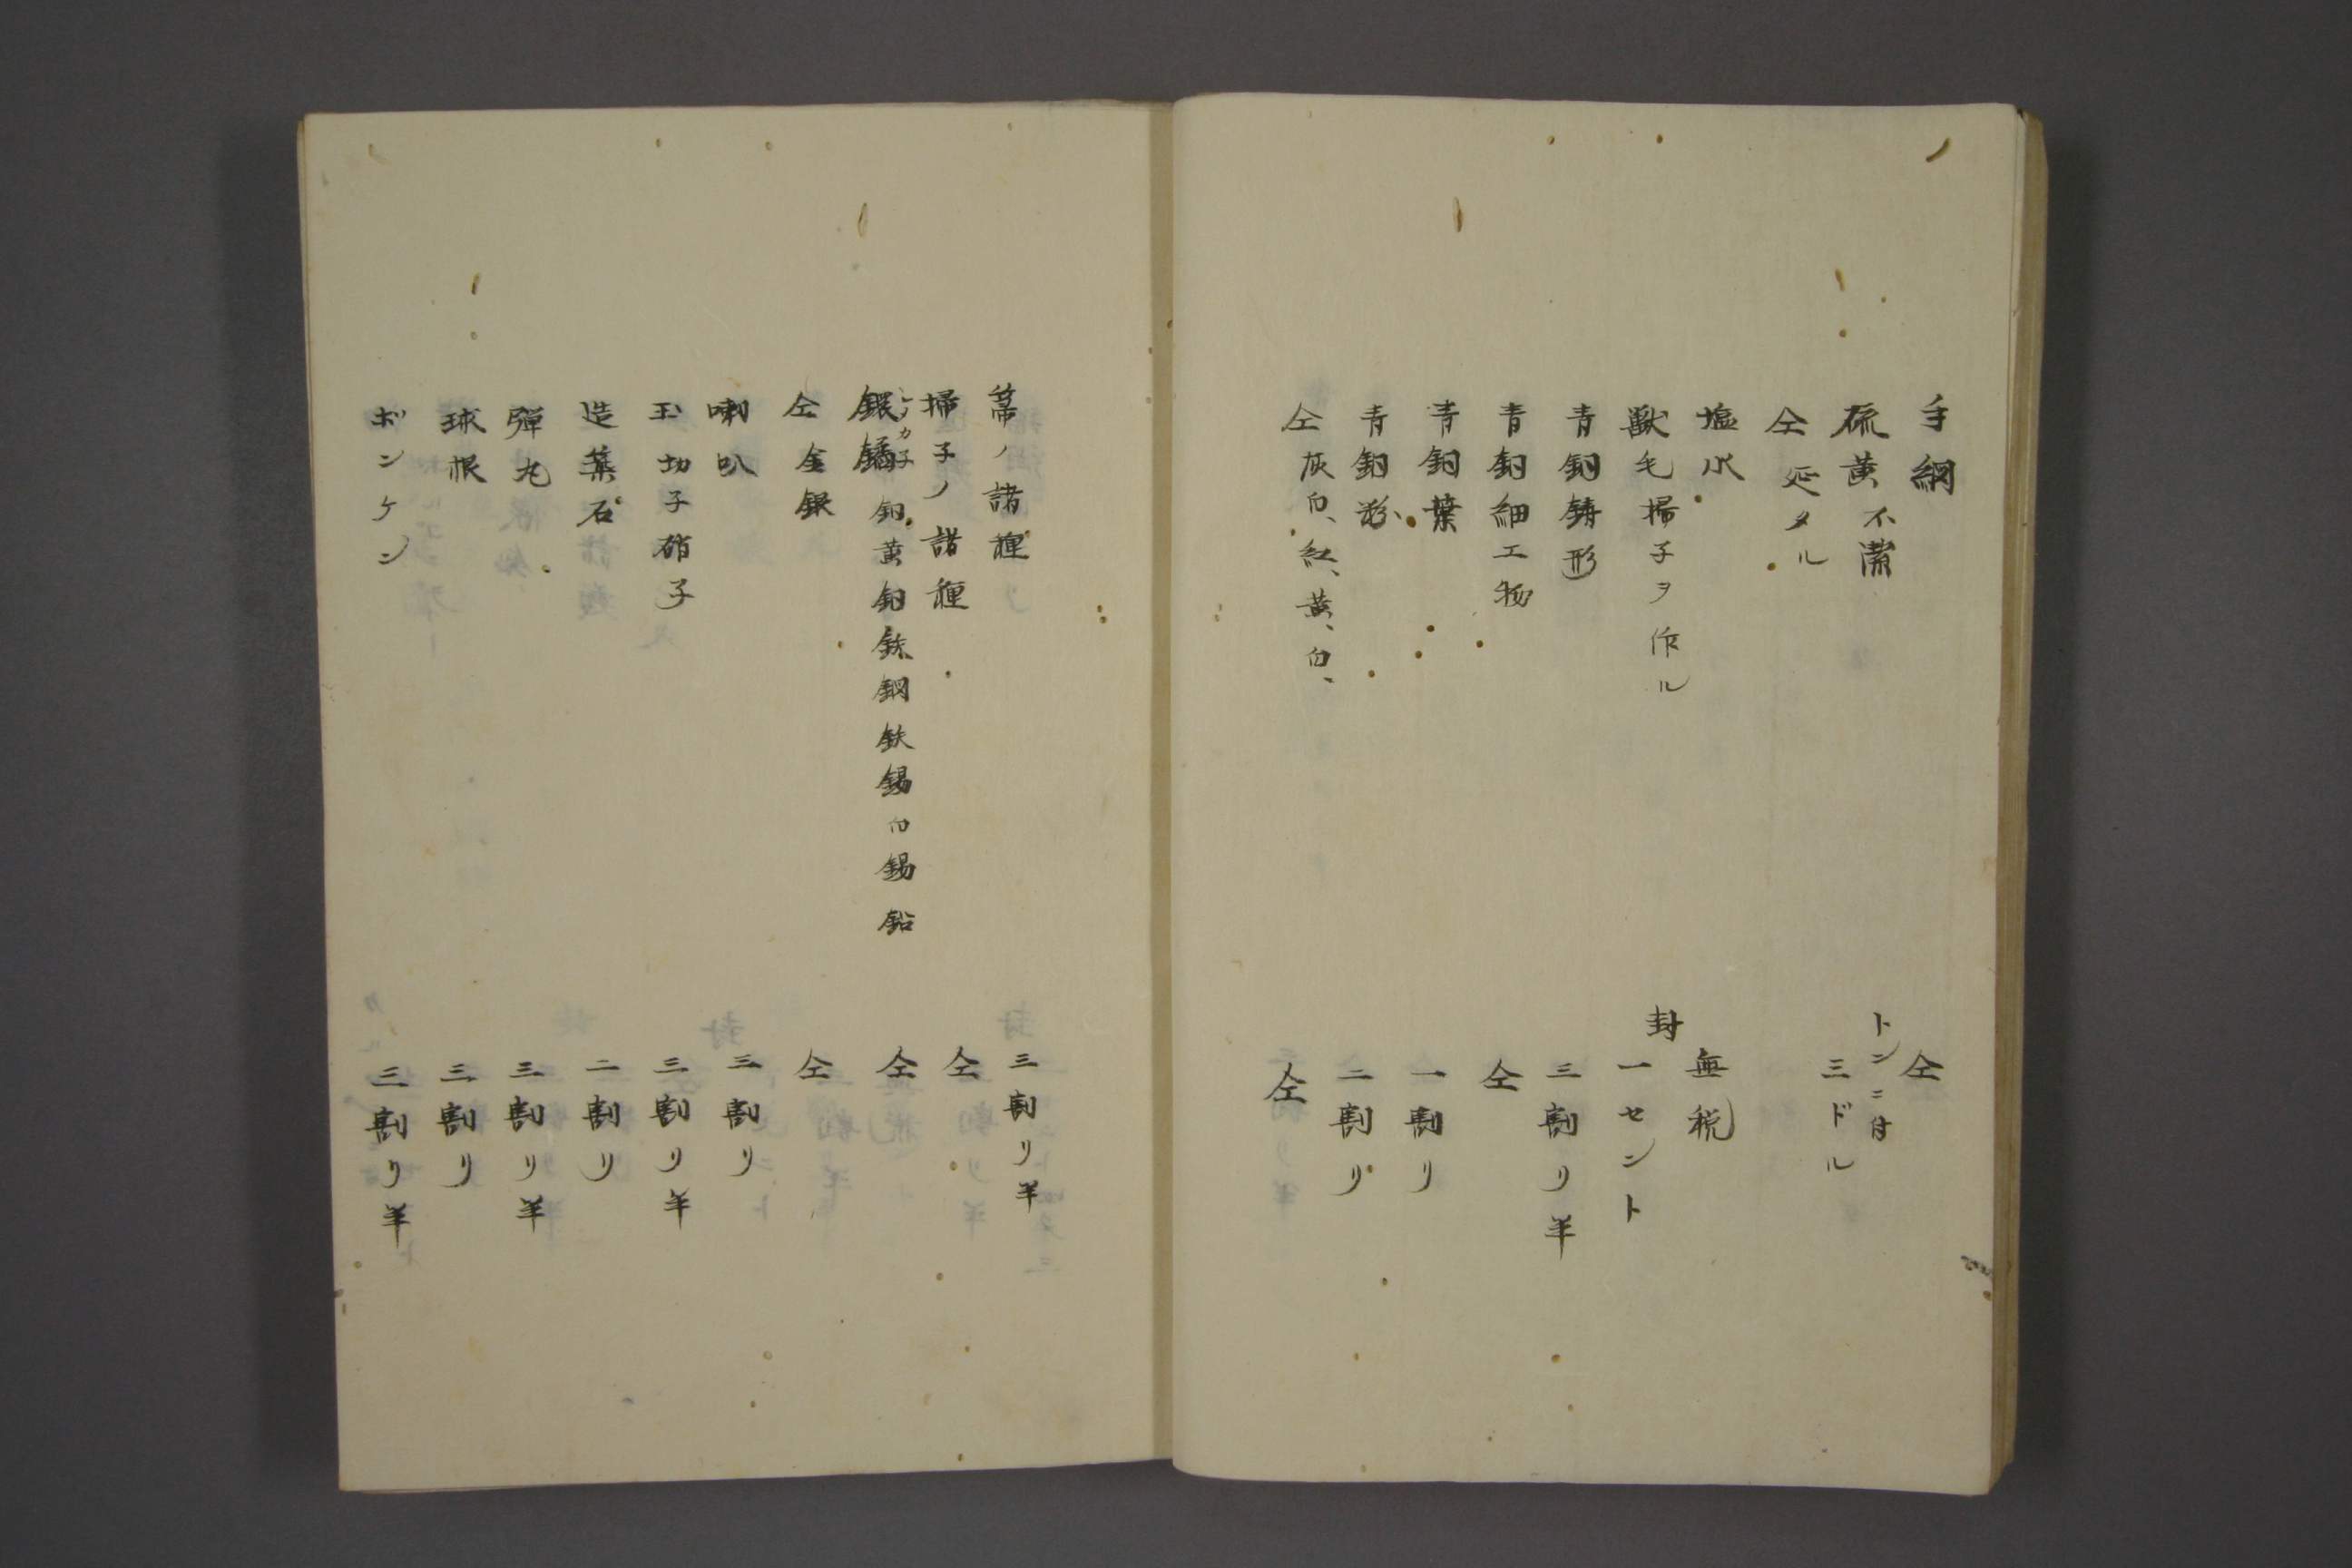 手綱 仝
硫黄不潔 トンニ付三ドル
仝延タル
塩水 無税
獣毛掃子ヲ作ル 封一セント
青銅鋳形 三割リ半
青銅細工物 仝
青銅葉 一割リ
青銅粉 二割リ
仝灰白、紅、黄、白、 仝
箒ノ諸種 三割リ半
掃子ノ諸種 仝
銅黄銅鉄鋼鉄錫白錫鉛 仝
仝金銀 仝
喇叭 三割リ
玉切子硝子 三割リ半
造築石 二割リ
弾丸 三割リ半
球根 三割リ
ボンケン 三割リ半